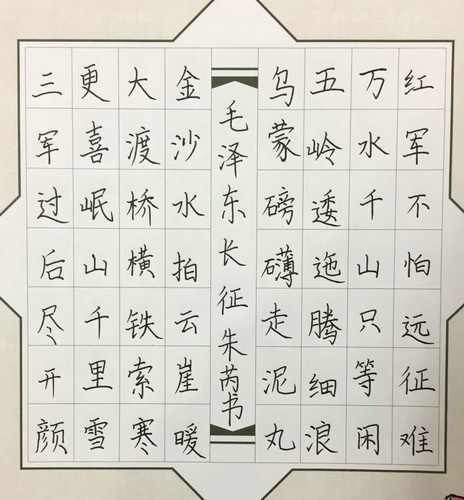 红军不怕远征难
万水千山只等闲
五岭逶迤腾细浪
乌蒙磅礴走泥丸
毛泽东长征朱芮书
金沙水拍云崖暖
大渡桥横铁索寒
更喜岷山千里雪
三军过后尽开颜